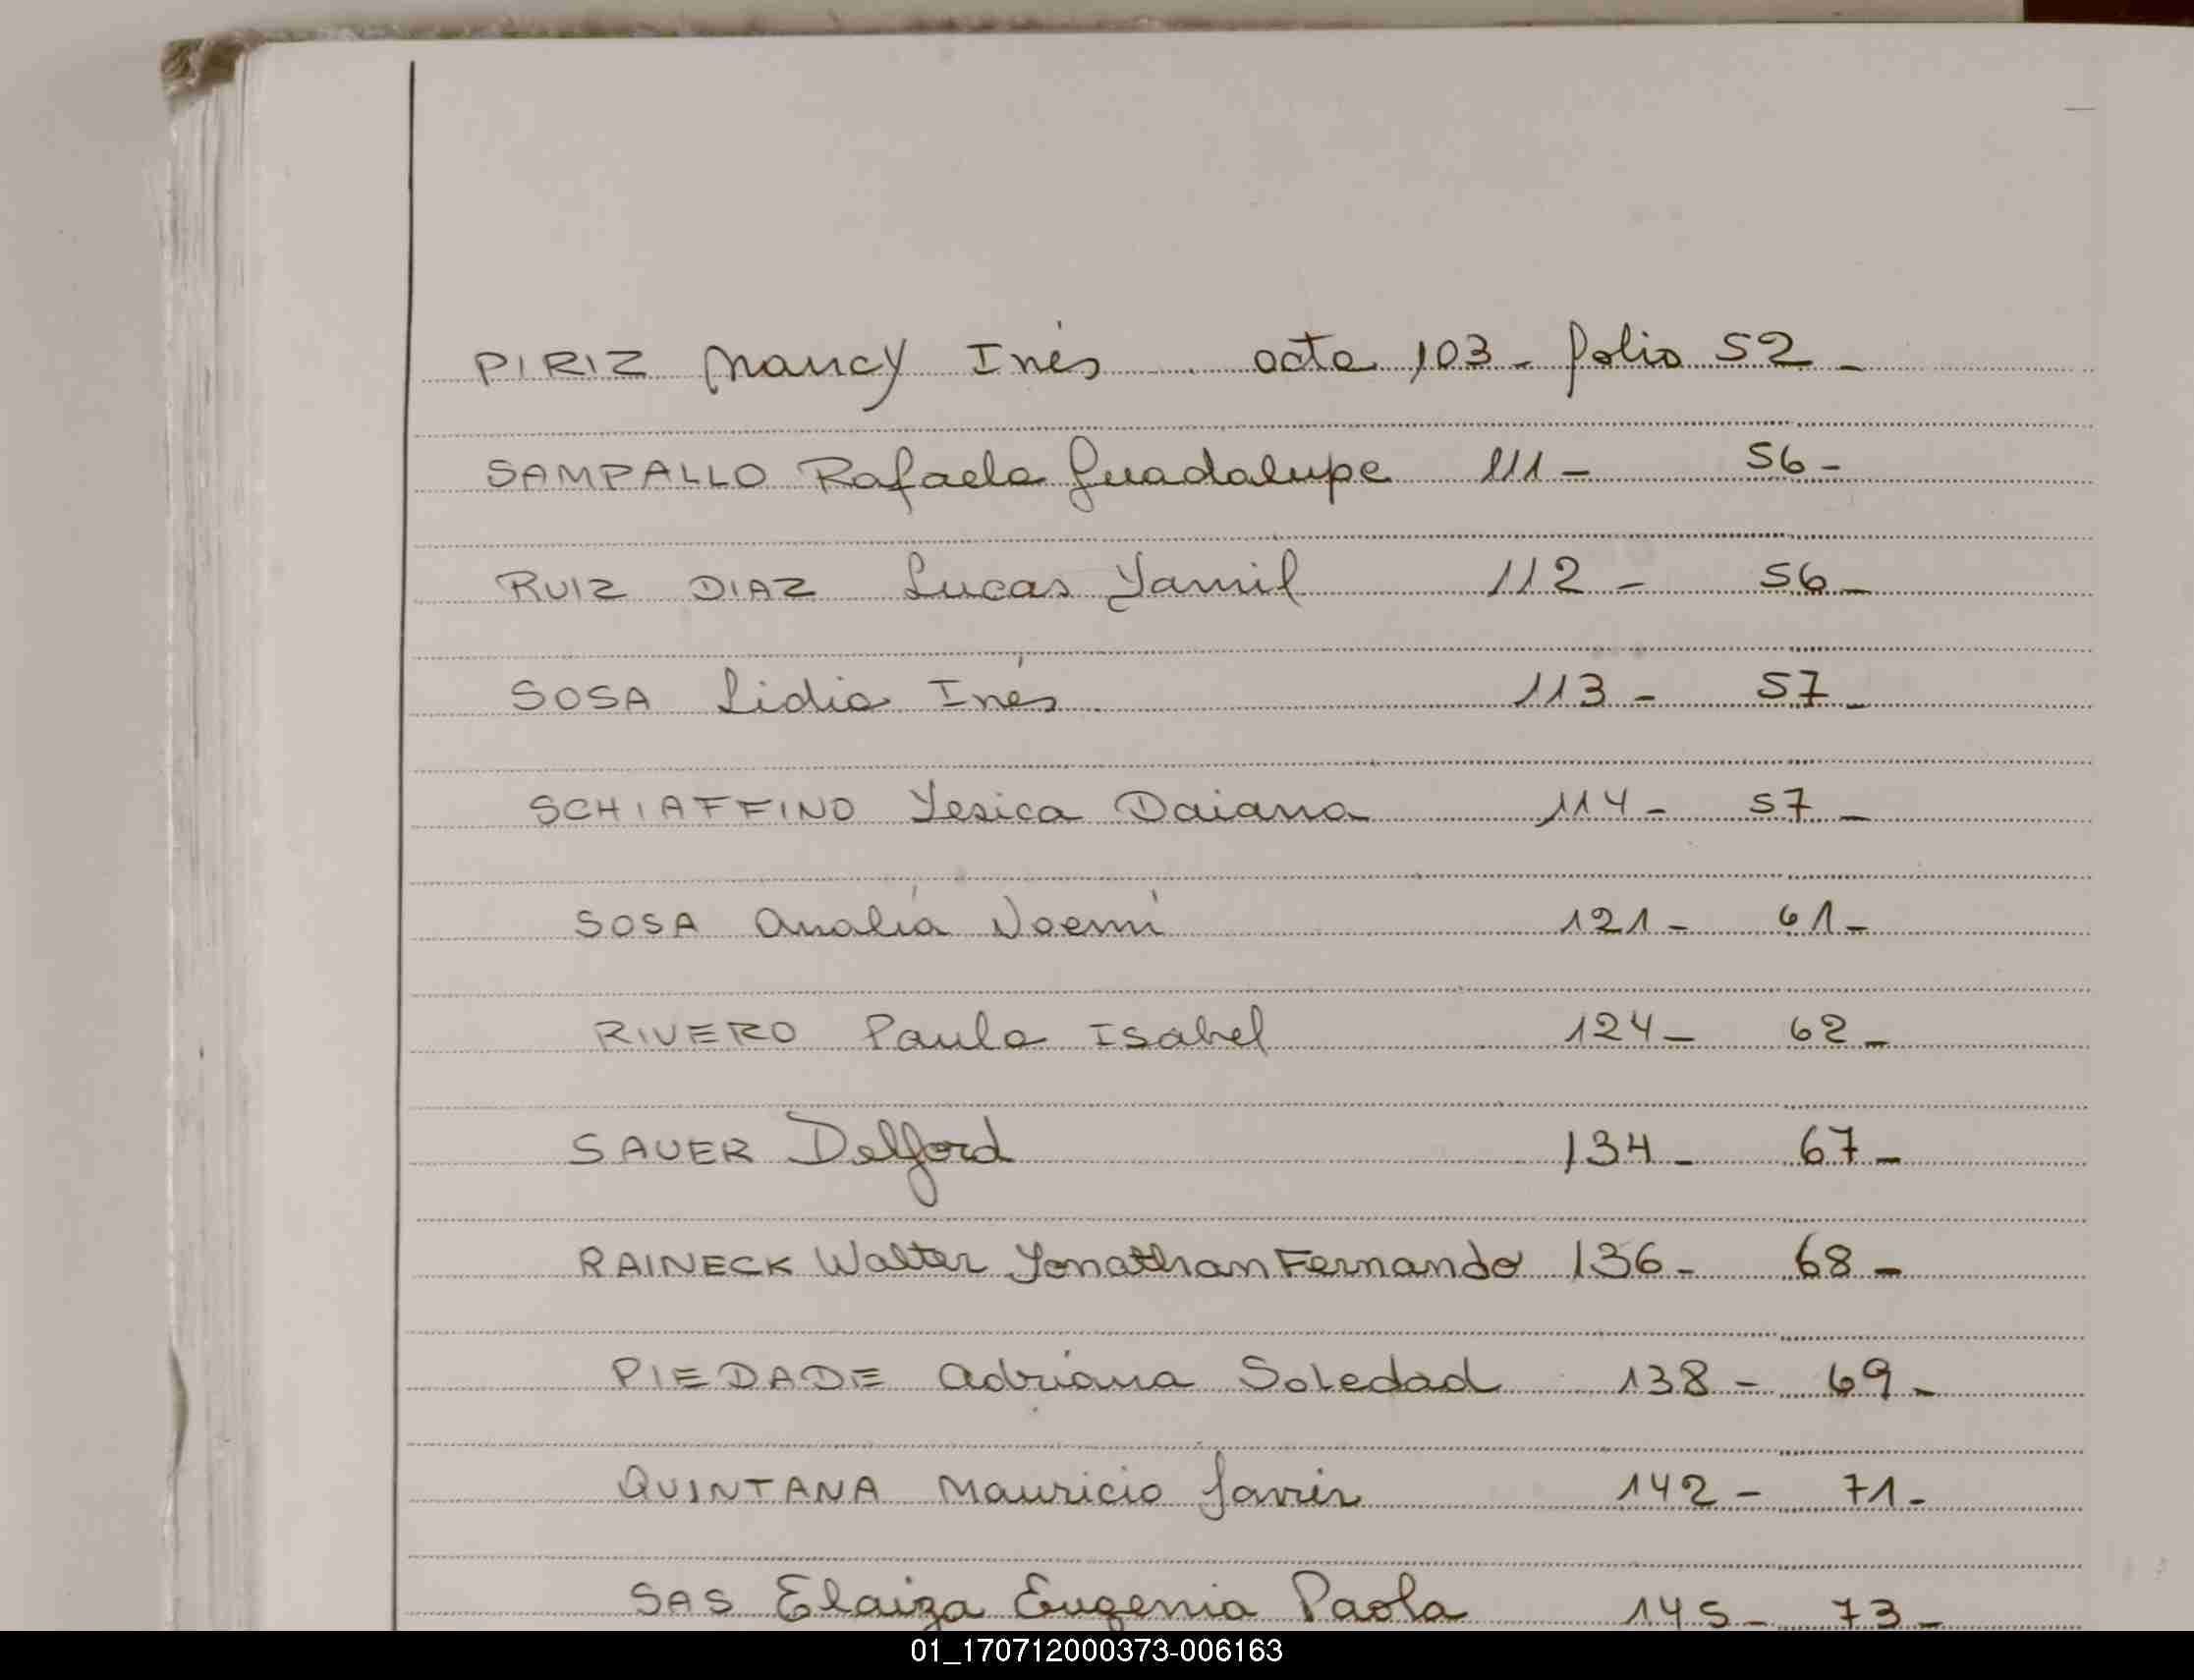 PIRIZ Nancy Inés acta 103- folio 52-
SAMPALLO Rafaela Guadalupe 111- 56-
RUIZ DIAZ Lucas Yamil 112- 56-
SOSA Lidia Inés. 113- 57-
SCHIAFFINO Yesica Daiana 114- 57-
SOSA Analía Noemí 121- 61-
RIVERO Paula Isabel 124- 62-
SAUER Delford 134- 67-
RAINECK Walter Yonathan Fernando 136- 68-
PIEDADE Adriana Soledad 138- 69-
QUINTANA Mauricio Javier 142- 71-
SAS Elaiza Eugenia Paola 145- 73-
01_170712000373-006163